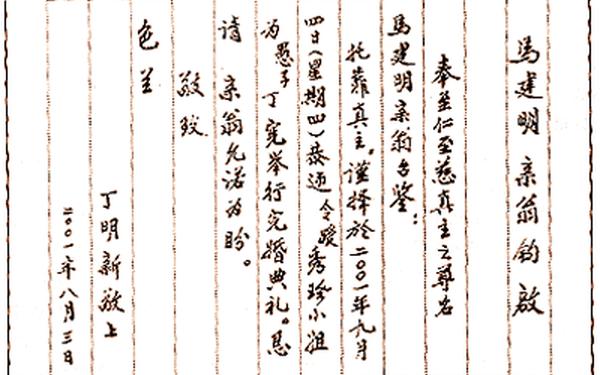 馬建明 亲翁鈞啟
奉至仁至慈真主之尊名
馬建明亲翁台鉴:
托靠真主,谨择於二00一年九月
四日(星期四)恭迎 令嫒秀珍小姐
为愚子丁宪举行完婚典礼。恳
请 亲翁允诺为盼。
敬致
色兰
丁明新敬上
二00一年八月三日